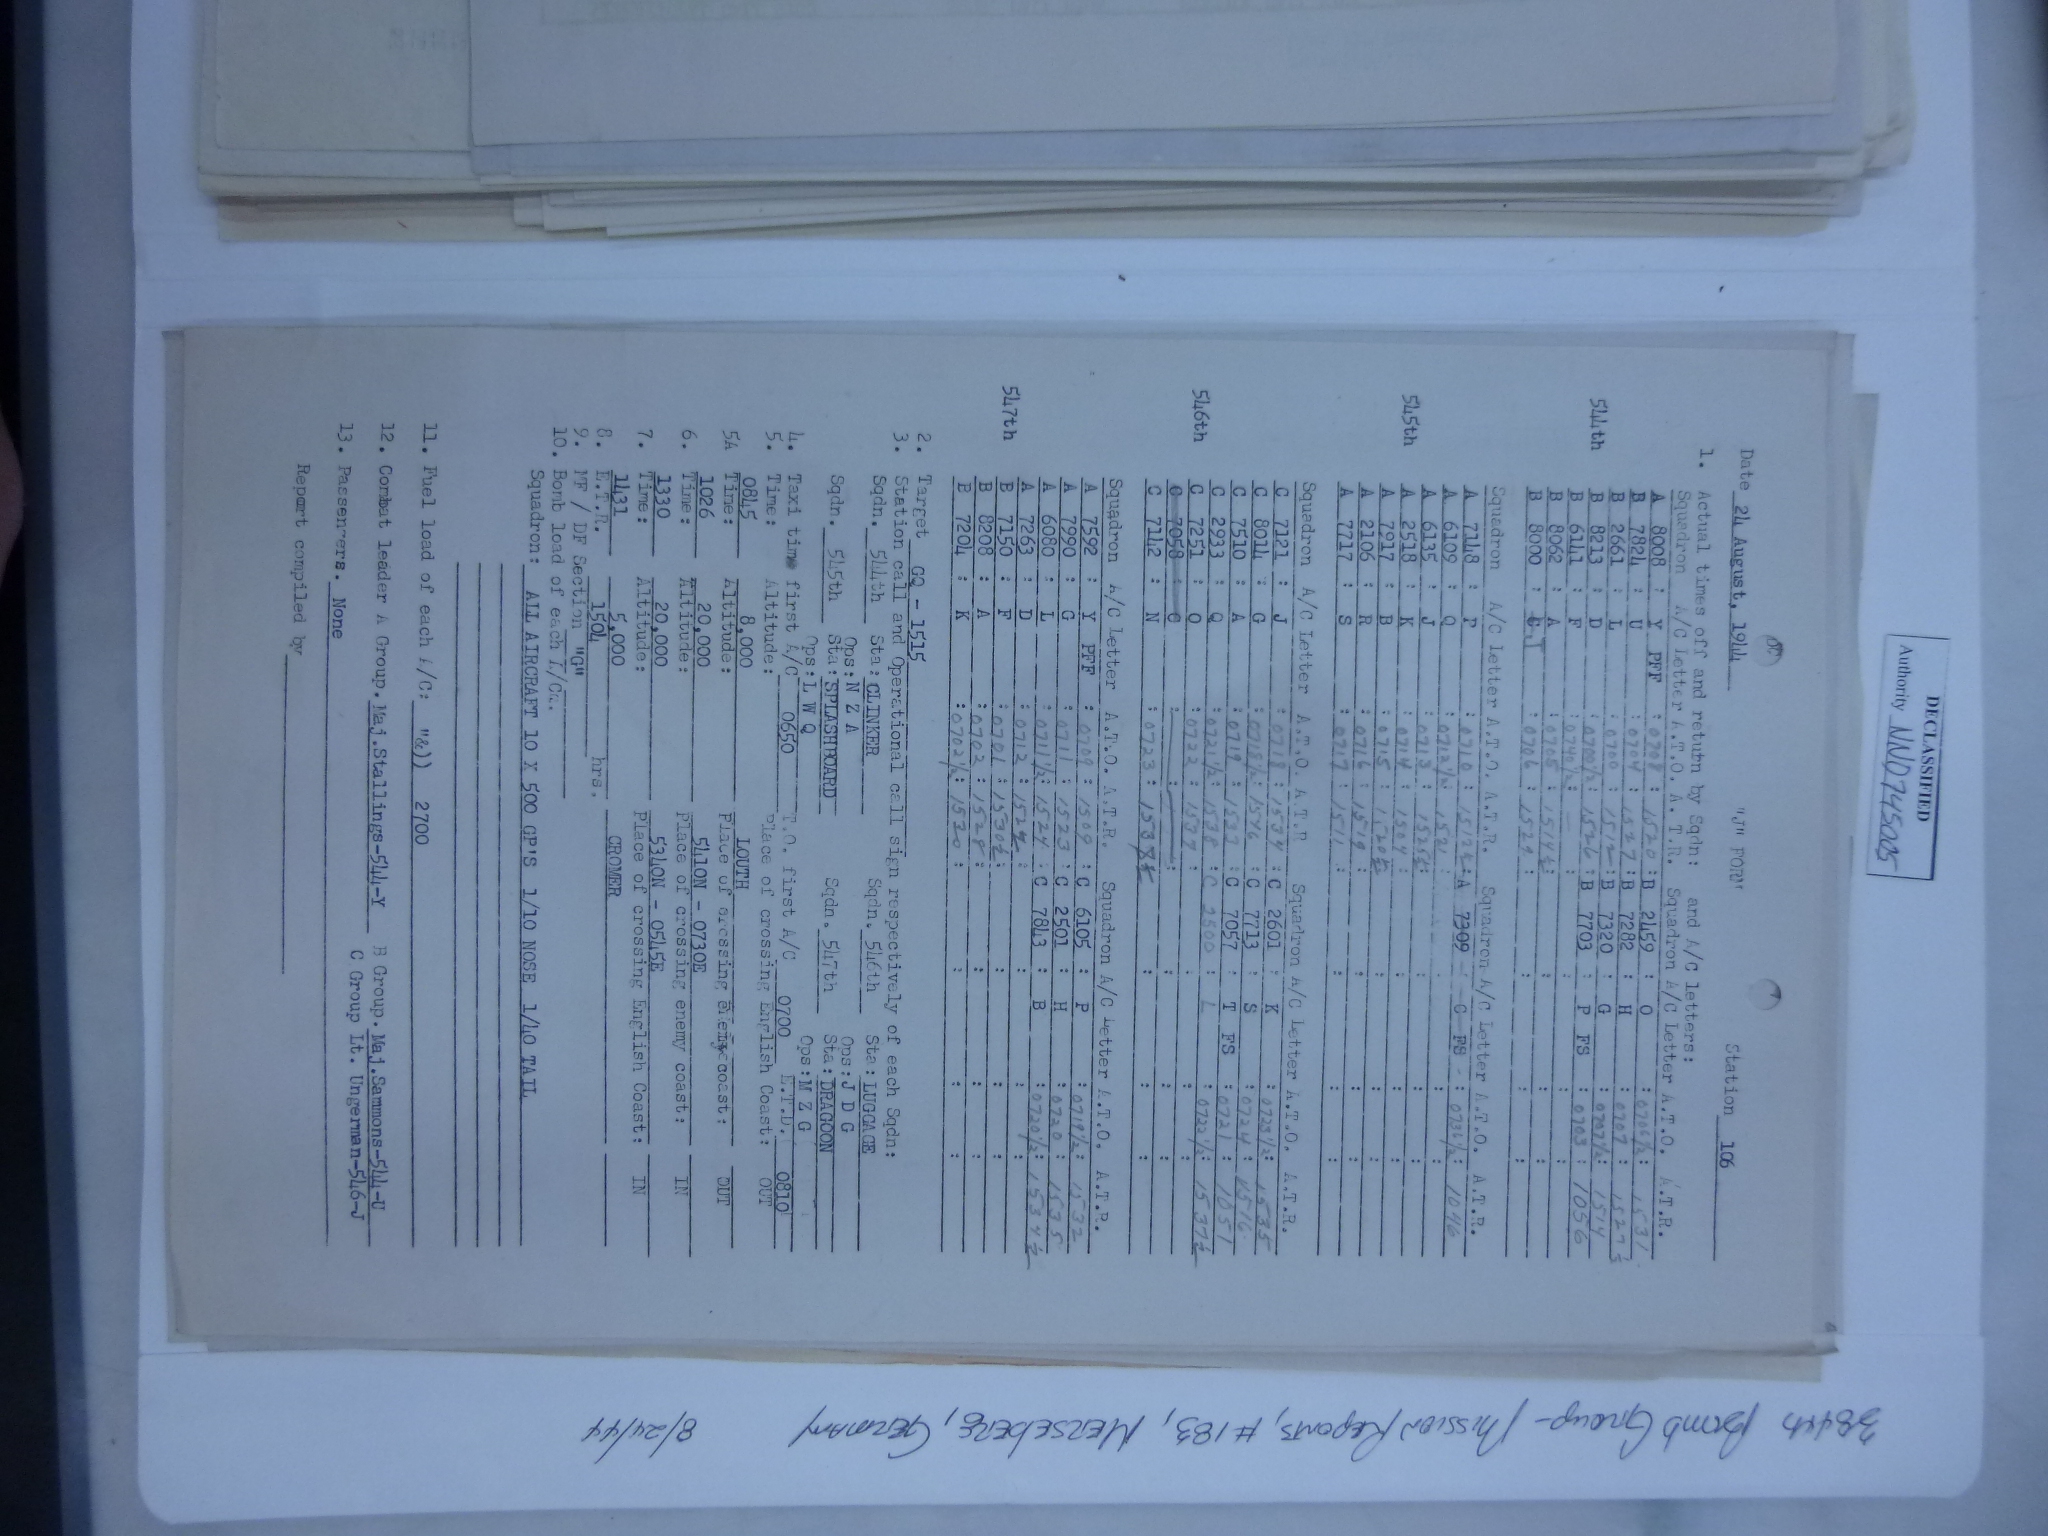 DECLASSIFIED
Authority NND745005
"J" FORM
Date 24 August, 1944 Station 106
1. Actual times off and return by Sqdn: and A/C letters:
Squadron A/C Letter A.T.O. A.T.R. Squadron A/C Letter A.T.O. A.T.R.
544th
A 8008 : Y PFF : 0708 : 1520 : B 2459 : O : 0706½ : 1531
B 7824 : U : 0704 : 1527 : B 7282 : H : 0707 : 1527½
B 2661 : L : 0700 : 1512 : B 7320 : G : 0707½ : 1514
B 8213 : D : 0700½ : 1526 : B 7703 : P FS : 0703 : 1056
B 6141 : F : 0740½ : — :
A 8062 : A : 0705 : 1514½ :
B 8000 : J : 0706 : 1529 :
Squadron A/C letter A.T.O. A.T.R. Squadron A/C Letter A.T.O. A.T.R.
545th
A 7148 : P : 0710 : 1512½ : A 7309 - C FS - : 0736½ : 1046
A 6109 : Q : 0712½ : 1521 :
A 6135 : J : 0713 : 1525½ :
A 2518 : K : 0714 : 1504 :
A 7917 : B : 0715 : 1520½ :
A 2106 : R : 0716 : 1519 :
A 7717 : S : 0717 : 1511 :
Squadron A/C Letter A.T.O. A.T.R Squadron A/C Letter A.T.O. A.T.R.
546th
C 7121 : J : 0718 : 1534 : C 2601 : K : 0723½ : 1535
C 8014 : G : 0718½ : 1536 : C 7713 : S : 0724 : 1516
C 7510 : A : 0719 : 1533 : C 7057 : T FS : 0721 : 1051
C 2933 : Q : 0721½ : 1538 : C 2500 : L : 0722½ : 1537½
C 7251 : O : 0722 : 1537 :
C 7058 : C : :
C 7142 : N : 0723 : 1538½
Squadron A/C Letter A.T.O. A.T.R. Squadron A/C Letter A.T.O. A.T.R.
547th
A 7592 : Y PFF : 0709 : 1509 : C 6105 : P : 0719½ : 1532
A 7990 : G : 0711 : 1523 : C 2501 : H : 0720 : 1535
A 6080 : L : 0711½ : 1524 : C 7843 : B : 0720½ : 1534½
A 7263 : D : 0712 : 1524 :
B 7150 : F : 0701 : 1530½ :
B 8208 : A : 0702 : 1528 :
B 7204 : K : 0702½ : 1530 :
2. Target GQ - 1515
3. Station call and Operational call sign respectively of each Sqdn:
Sqdn. 544th Sta: CLINKER Sqdn. 546th Sta: LUGGAGE
Ops: N Z A Ops: J D G
Sqdn. 545th Sta: SPLASHBOARD Sqdn. 547th Sta: DRAGOON
Ops: L W Q Ops: M Z G
4. Taxi time first A/C 0650 T.O. first A/C 0700 E.T.D. 0810
5. Time: Altitude: Place of crossing English Coast: OUT
0845 8,000 LOUTH
5A Time: Altitude: Place of crossing enemy coast: OUT
1026 20,000 5410N - 0730E
6. Time: Altitude: Place of crossing enemy coast: IN
1330 20,000 5340N - 0545E
7. Time: Altitude: Place of crossing English Coast: IN
1431 5,000 CROMER
8. E.T.R. 1504 hrs.
9. MF / DF Section "G"
10. Bomb load of each A/C.
Squadron: ALL AIRCRAFT 10 X 500 GP'S 1/10 NOSE 1/40 TAIL
11. Fuel load of each A/C: "&)) 2700
12. Combat leader A Group. Maj.Stallings-544-Y B Group. Maj.Sammons-544-U
C Group Lt. Ungerman-546-J
13. Passengers. None
Report compiled by
384th Bomb Group - Mission Reports, #183, Merseberg, Germany 8/24/44